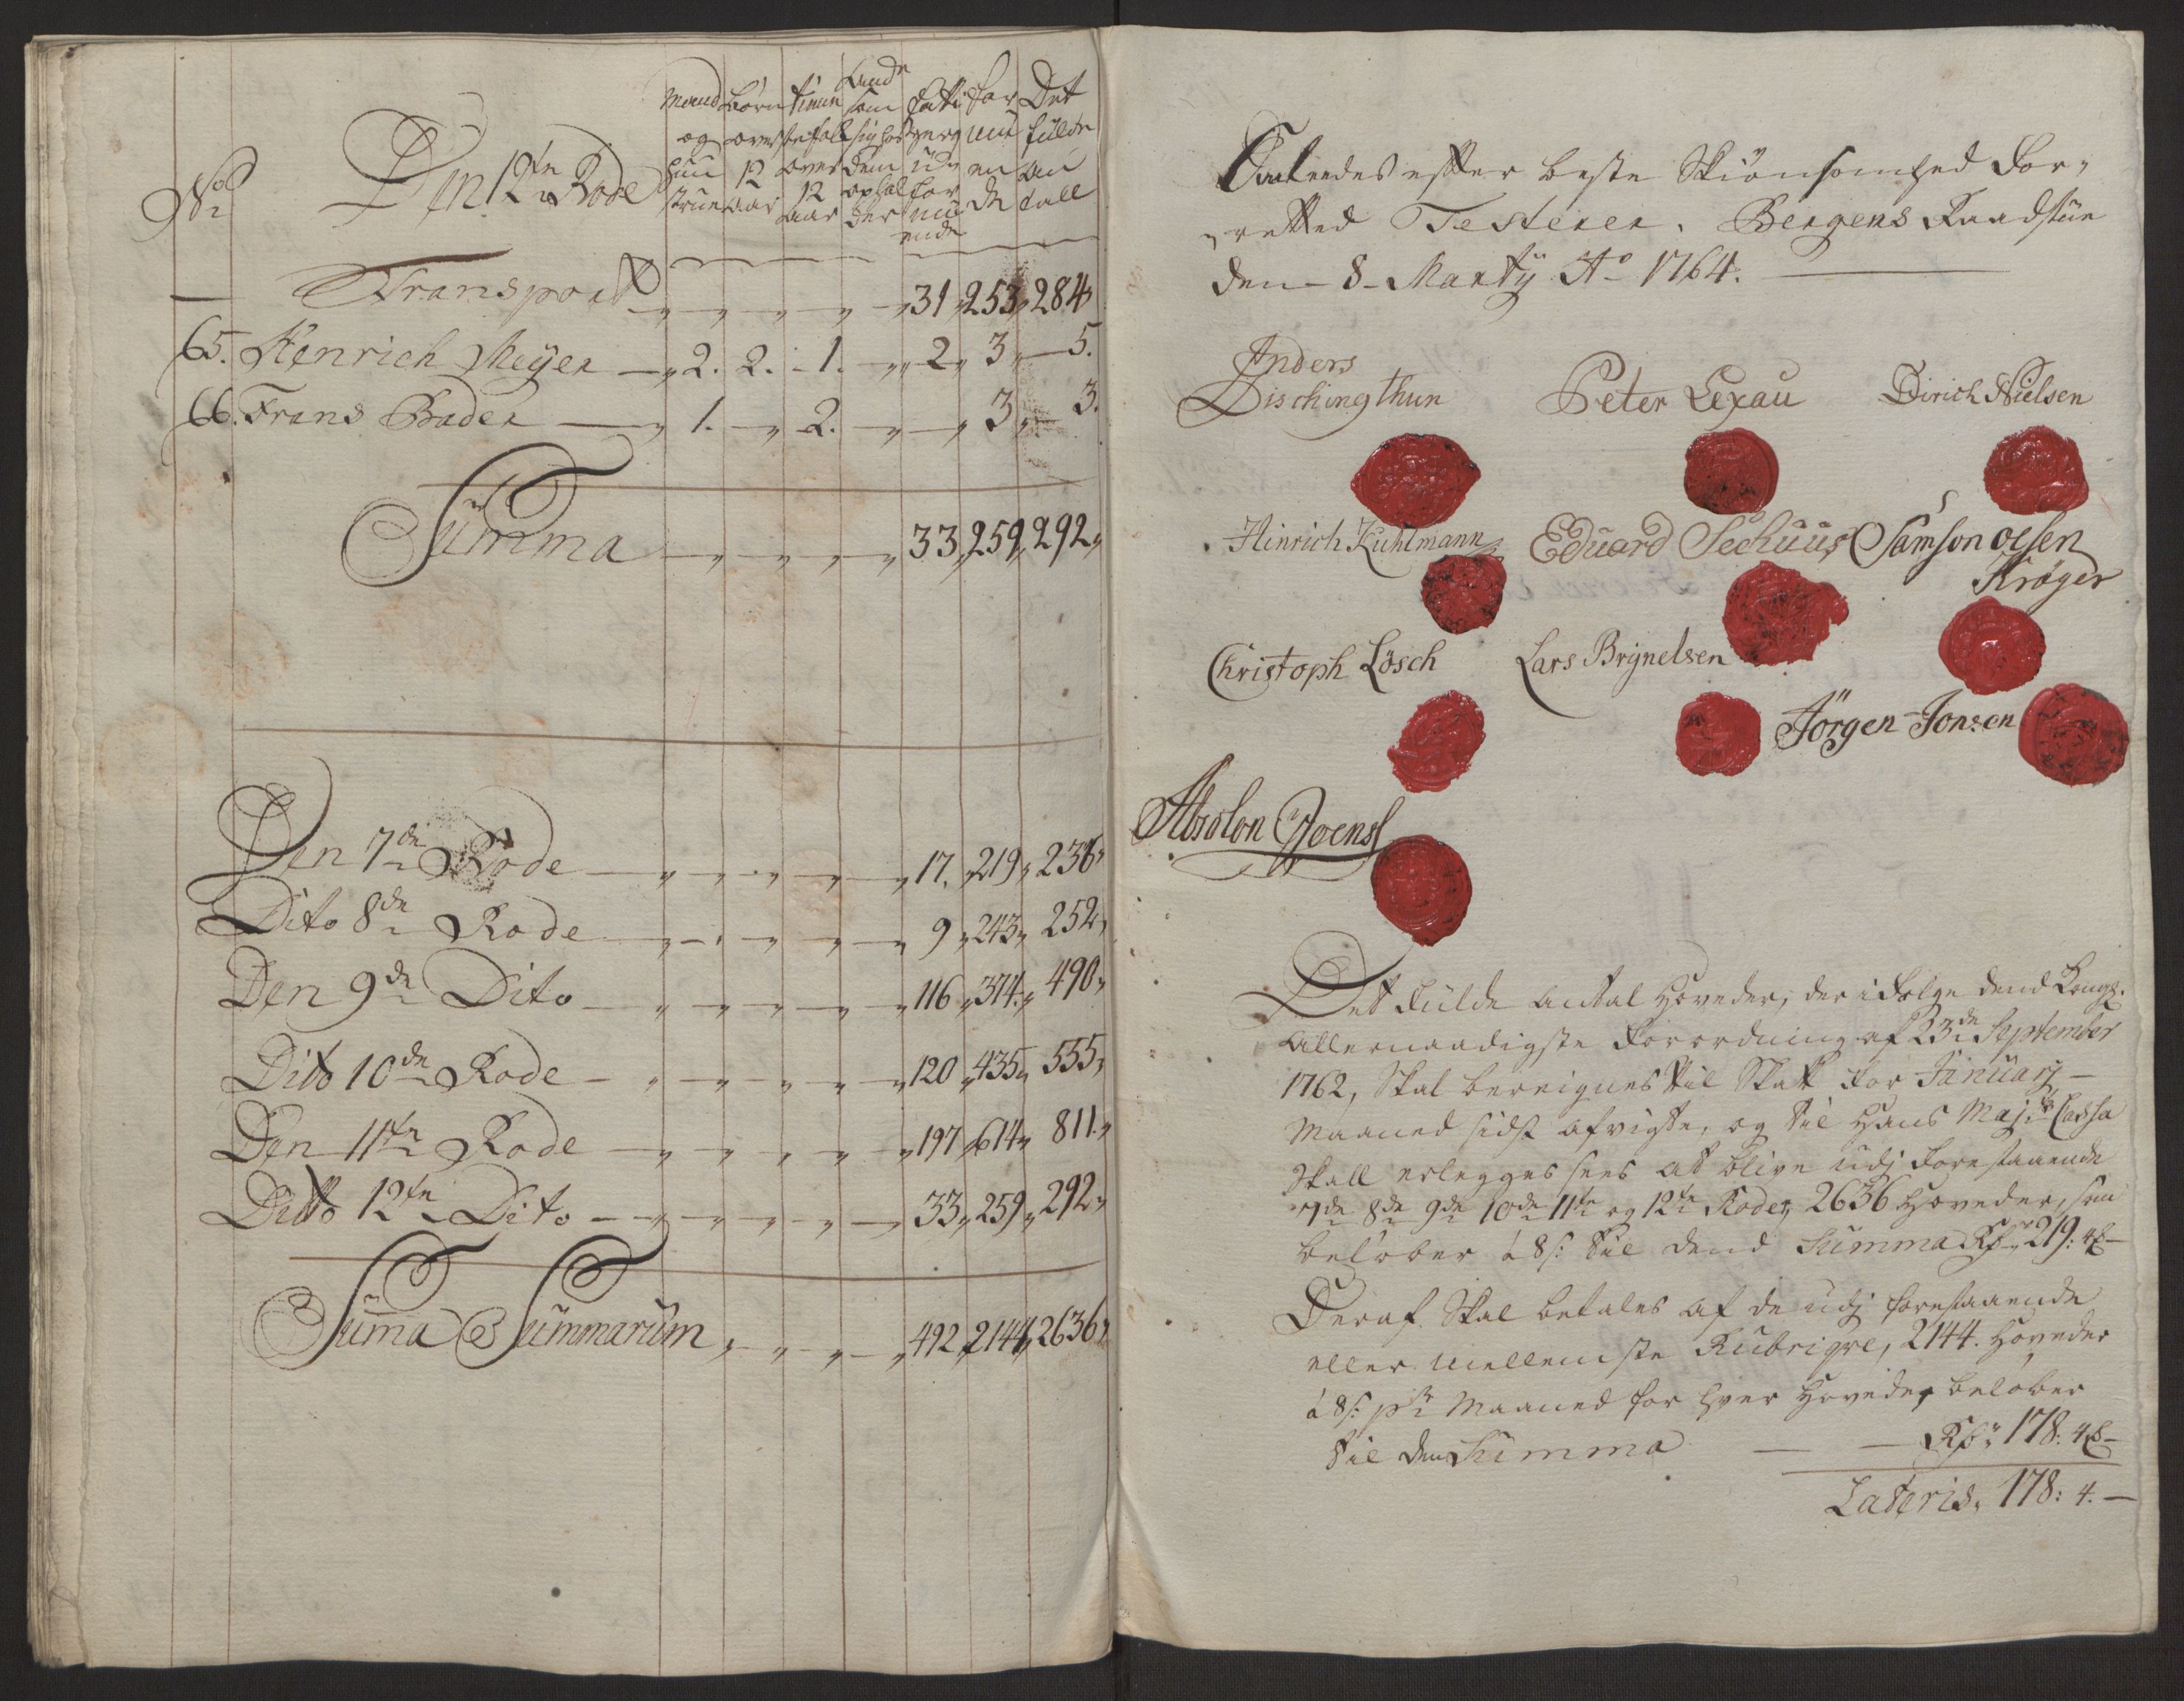 No
Den 12te Rode
Mand og hustruer
Børn over 12 aar
tienniste folk over 12 aar
Andre som sig hos dem opholder
fattige og uformuende
formuende
Det fulde antall
Transport 31 253 284
65. Henrich Meyer 2. 2. 1. 2 3 5.
66. Frans Bader 1. 2. 3 3.
Summa 33 259 292
Den 7de Rode 17. 219 236
Dito 8de Rode 9 243 252
Den 9de Dito 116 374 490
Dito 10de Rode 120 435 555
Den 11te Rode 197 614 811
Ditto 12te Dito 33 259 292
Suma Summarum, 492 2144 2636
Saaledes efter beste Skiønsomhed for-
retted Testerer. Bergens Raadstue
den 8 Marty Ao 1764.
Anders
Dischingthun
Peter Lexau
Dirich Nielsen
Hinrich Kuhlmann
Eduard Sechuus
Samson olsen
Krøger
Christoph Lösch
Lars Brynelsen
Jörgen Jonsen
Absolon Joenss
Det fulde antal Hoveder, der i følge dend Kongl.
allernaadigste Forordning af 23de September
1762, Skal bereignes til Skatt for January
Maaned sidst afvigte, og til Hans Majts Cassa
Skall erlegges sees at blive udj forestaaende
7de 8de 9de 10de 11te og 12te Roder 2636 Hoveder, som
beløber á 8s: til dend Summa Rdr 219: 4
Deraf Skal betales af de udj forestaaende
eller mellemste Rubrique, 2144. Hoveder
á 8s: pr Maaned for hver Hoveder, beløber
til den Summa Rdr 178: 4
Lateris. 178: 4.